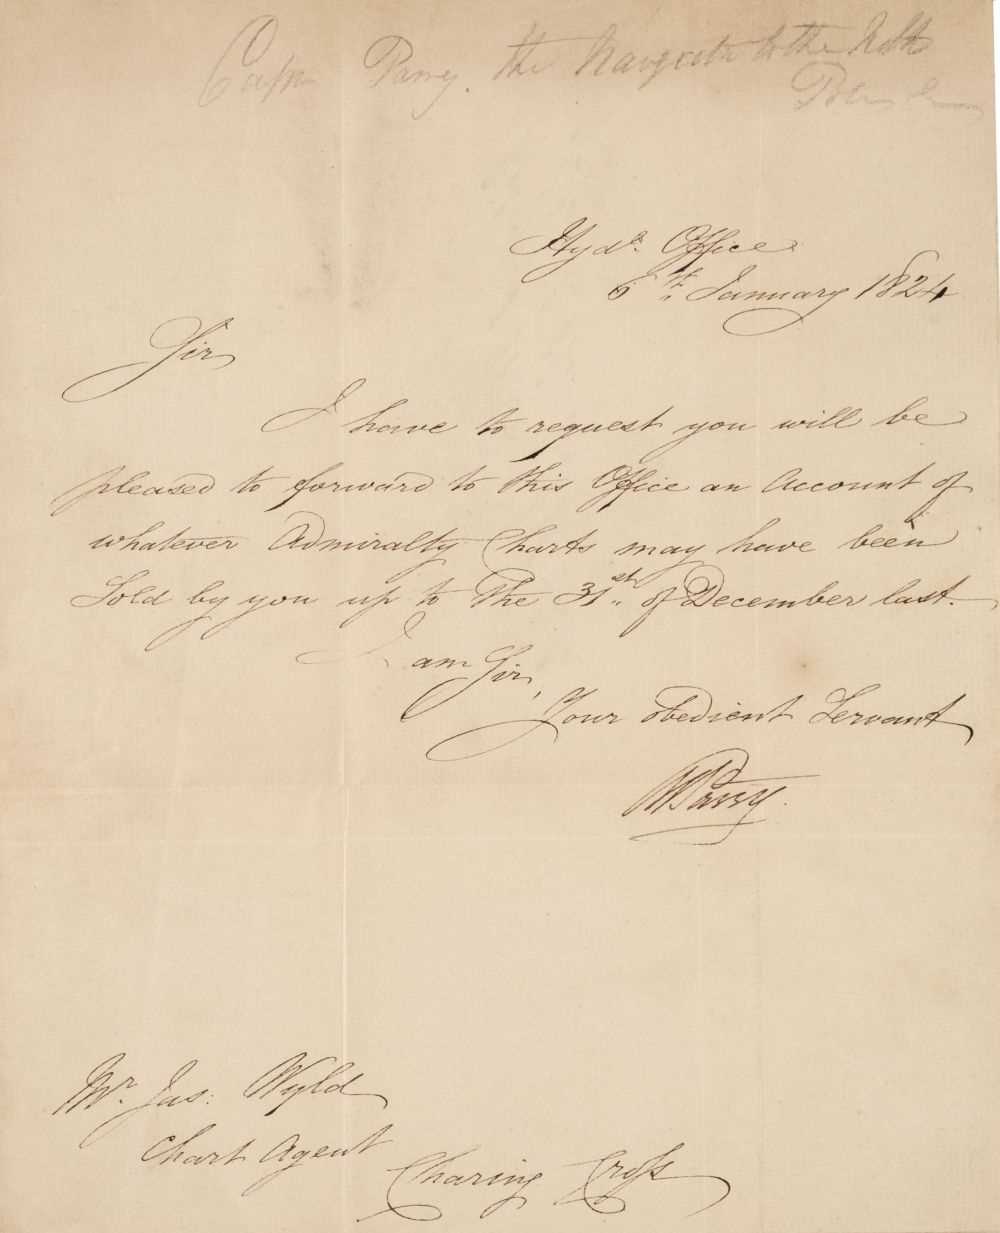 Capn Parry, the Navigator to the North
Pole
Hydl. Office
6th January 1824
Sir
I have to request you will be
pleased to forward to this Office an Account of
whatever Admiralty Charts may have been
Sold by you up to the 31st of December last.
I am Sir,
Your obedient Servant
WEParry.
Mr. Jas: Wyld
Chart Agent
Charing Cross